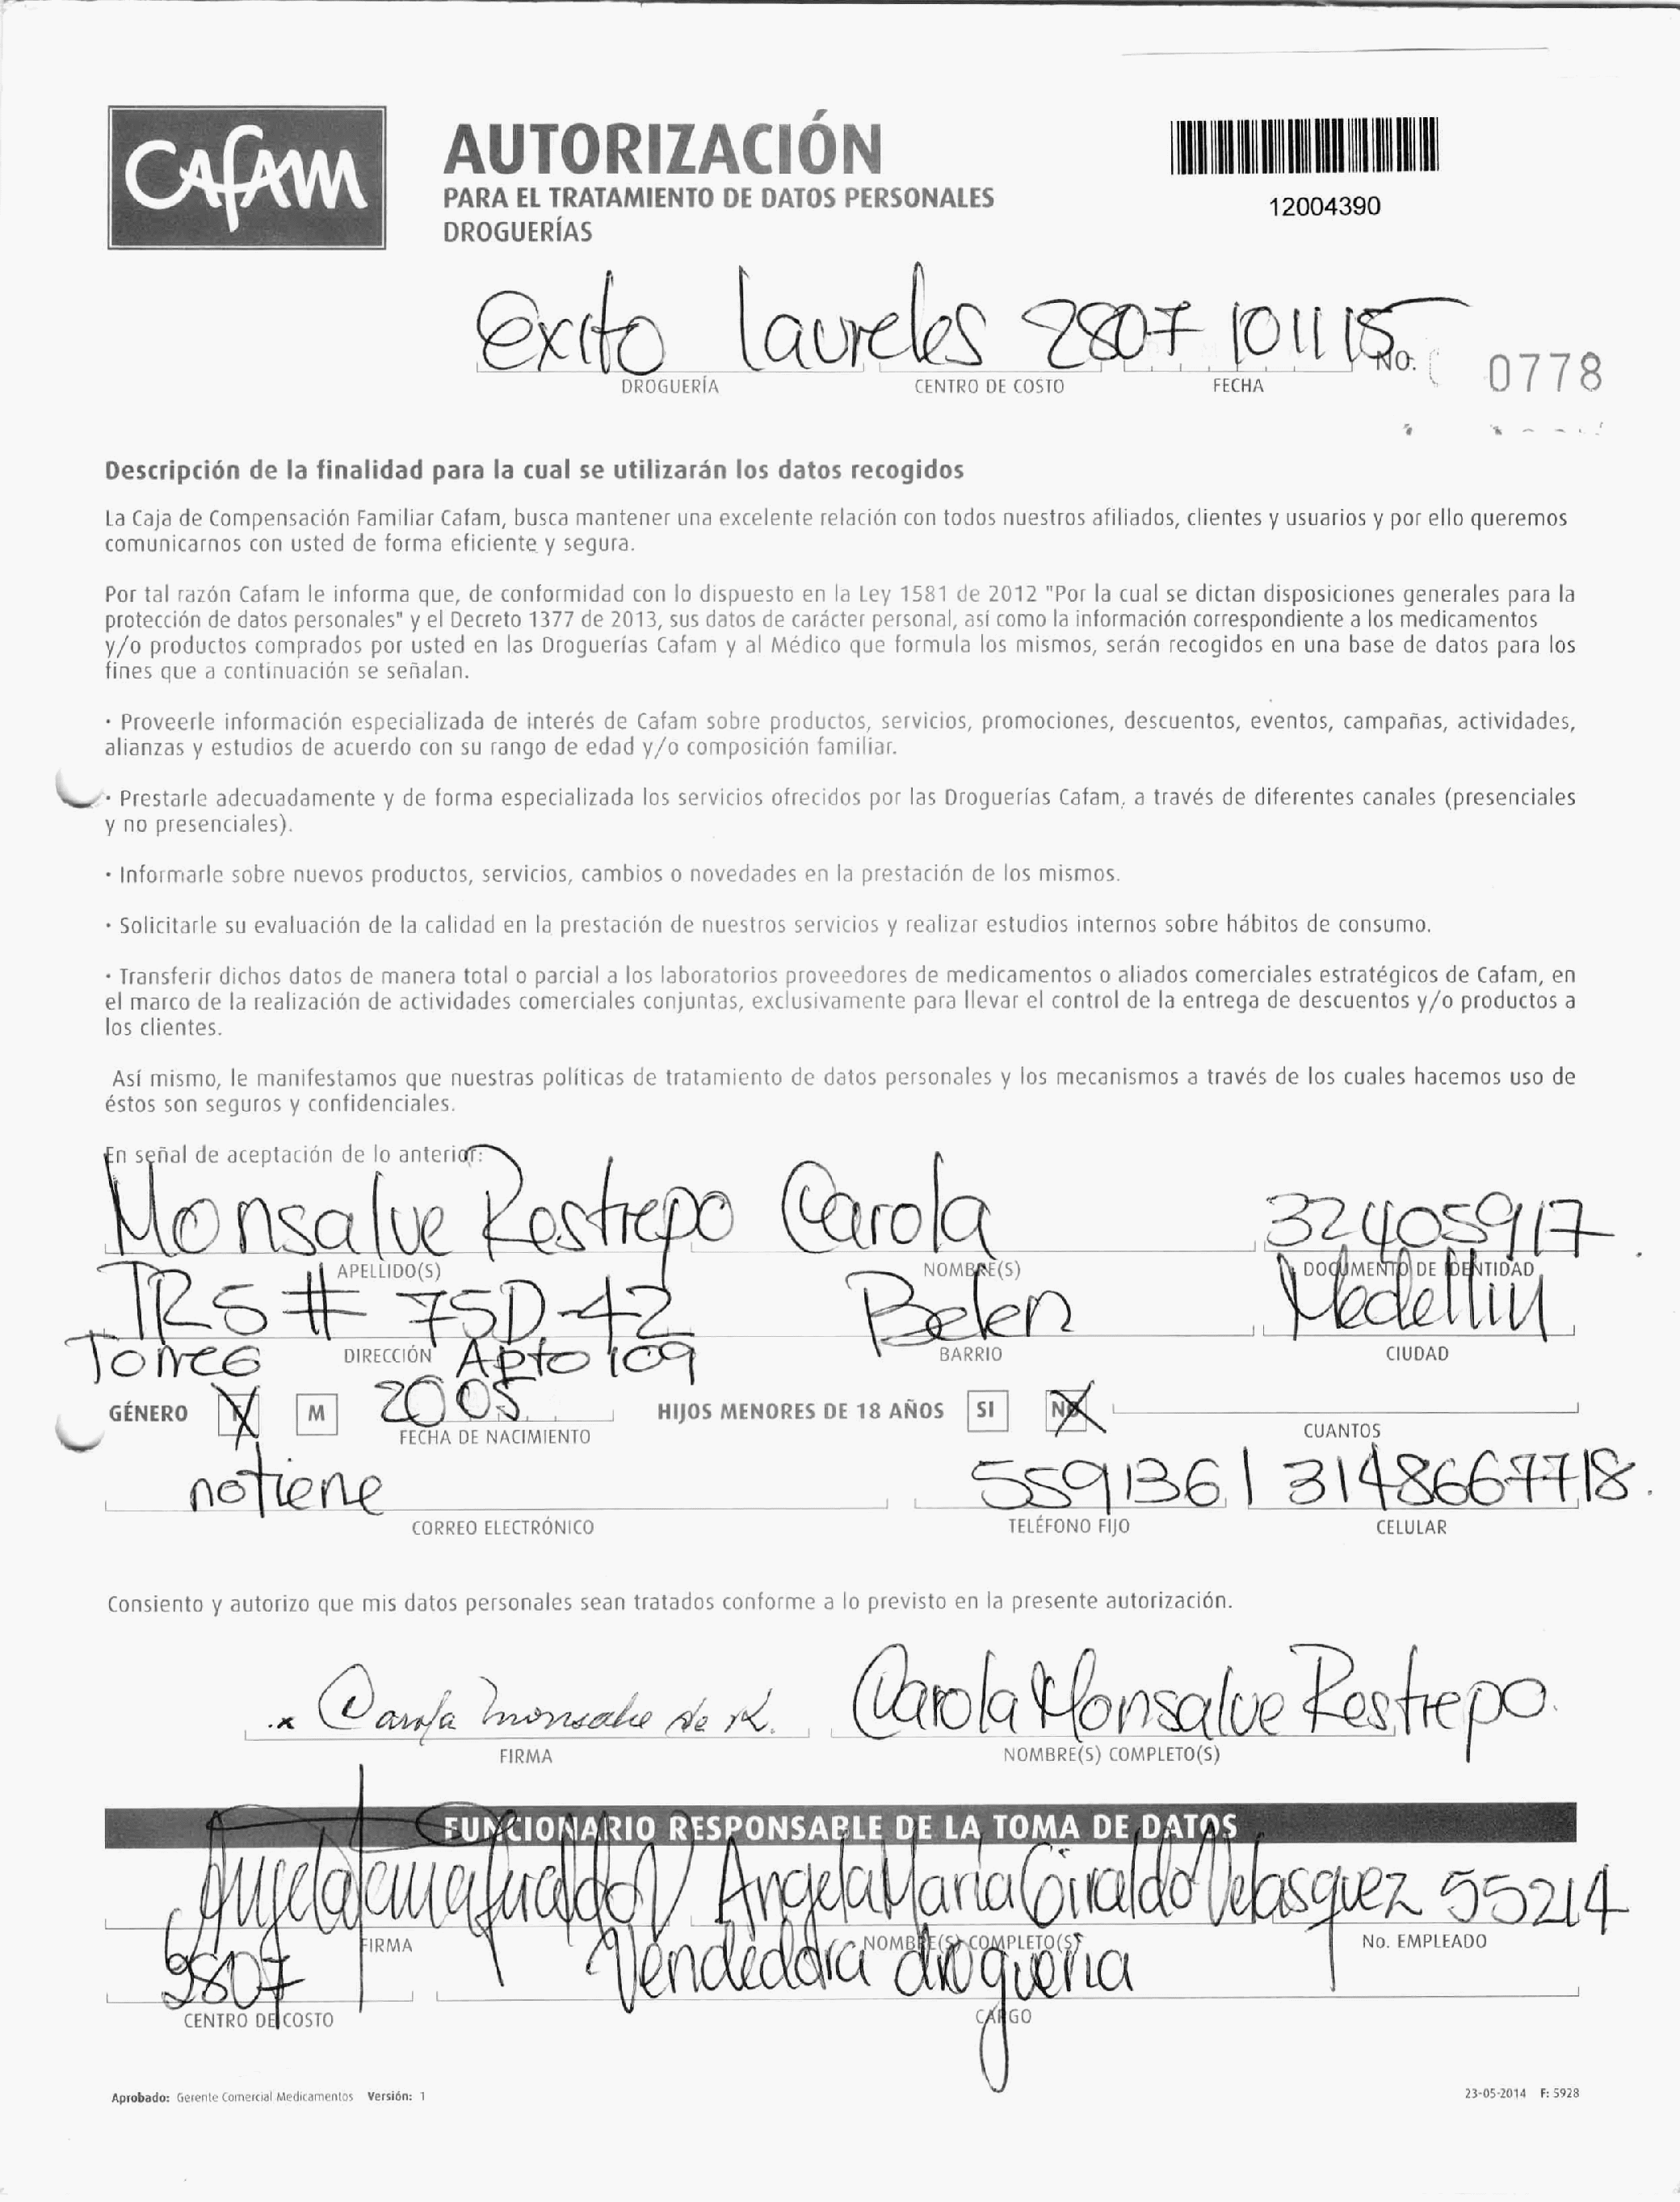 CAFAM
AUTORIZACIÓN
PARA EL TRATAMIENTO DE DATOS PERSONALES
DROGUERÍAS
12004390
Exito laureles 2807 101115
DROGUERÍA CENTRO DE COSTO FECHA No. 0778
Descripción de la finalidad para la cual se utilizarán los datos recogidos
La Caja de Compensación Familiar Cafam, busca mantener una excelente relación con todos nuestros afiliados, clientes y usuarios y por ello queremos
comunicarnos con usted de forma eficiente y segura.
Por tal razón Cafam le informa que, de conformidad con lo dispuesto en la Ley 1581 de 2012 "Por la cual se dictan disposiciones generales para la
protección de datos personales" y el Decreto 1377 de 2013, sus datos de carácter personal, así como la información correspondiente a los medicamentos
y/o productos comprados por usted en las Droguerías Cafam y al Médico que formula los mismos, serán recogidos en una base de datos para los
fines que a continuación se señalan.
· Proveerle información especializada de interés de Cafam sobre productos, servicios, promociones, descuentos, eventos, campañas, actividades,
alianzas y estudios de acuerdo con su rango de edad y/o composición familiar.
· Prestarle adecuadamente y de forma especializada los servicios ofrecidos por las Droguerías Cafam, a través de diferentes canales (presenciales
y no presenciales).
· Informarle sobre nuevos productos, servicios, cambios o novedades en la prestación de los mismos.
· Solicitarle su evaluación de la calidad en la prestación de nuestros servicios y realizar estudios internos sobre hábitos de consumo.
· Transferir dichos datos de manera total o parcial a los laboratorios proveedores de medicamentos o aliados comerciales estratégicos de Cafam, en
el marco de la realización de actividades comerciales conjuntas, exclusivamente para llevar el control de la entrega de descuentos y/o productos a
los clientes.
Así mismo, le manifestamos que nuestras políticas de tratamiento de datos personales y los mecanismos a través de los cuales hacemos uso de
éstos son seguros y confidenciales.
En señal de aceptación de lo anterior:
Monsalve Restrepo Carola 32405917
APELLIDO(S) NOMBRE(S) DOCUMENTO DE IDENTIDAD
TR5 # 75D-42 Belen Medellin
DIRECCIÓN BARRIO CIUDAD
Torre6 Apto 109
GÉNERO M 2005 HIJOS MENORES DE 18 AÑOS SI NO
FECHA DE NACIMIENTO CUANTOS
notiene 5591361 3148667718.
CORREO ELECTRÓNICO TELÉFONO FIJO CELULAR
Consiento y autorizo que mis datos personales sean tratados conforme a lo previsto en la presente autorización.
x Carola Monsalve de R. Carola Monsalve Restrepo.
FIRMA NOMBRE(S) COMPLETO(S)
FUNCIONARIO RESPONSABLE DE LA TOMA DE DATOS
Angela Maria Giraldo Velasquez 55214
FIRMA NOMBRE(S) COMPLETO(S) No. EMPLEADO
2807 Vendedora drogueria
CENTRO DE COSTO CARGO
Aprobado: Gerente Comercial Medicamentos Versión: 1
23-05-2014 F: 5928